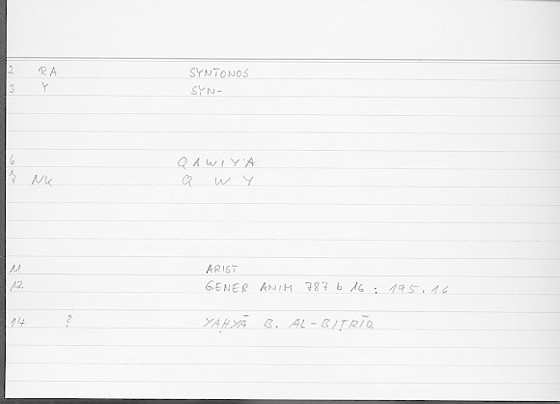 2 RA SYNTONOS
3 Y SYN-
6 QAWIYA
7 NK Q W Y
11 ARIST
12 GENER ANIM 787 b 16 : 195.16
14 ? YAḤYĀ B. AL-BIṬRĪQ